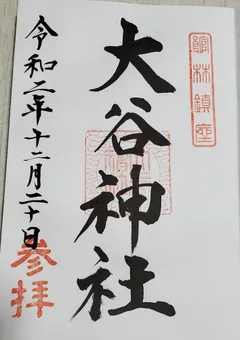 館林鎮座
大谷神社
令和二年十二月二十日
参拝